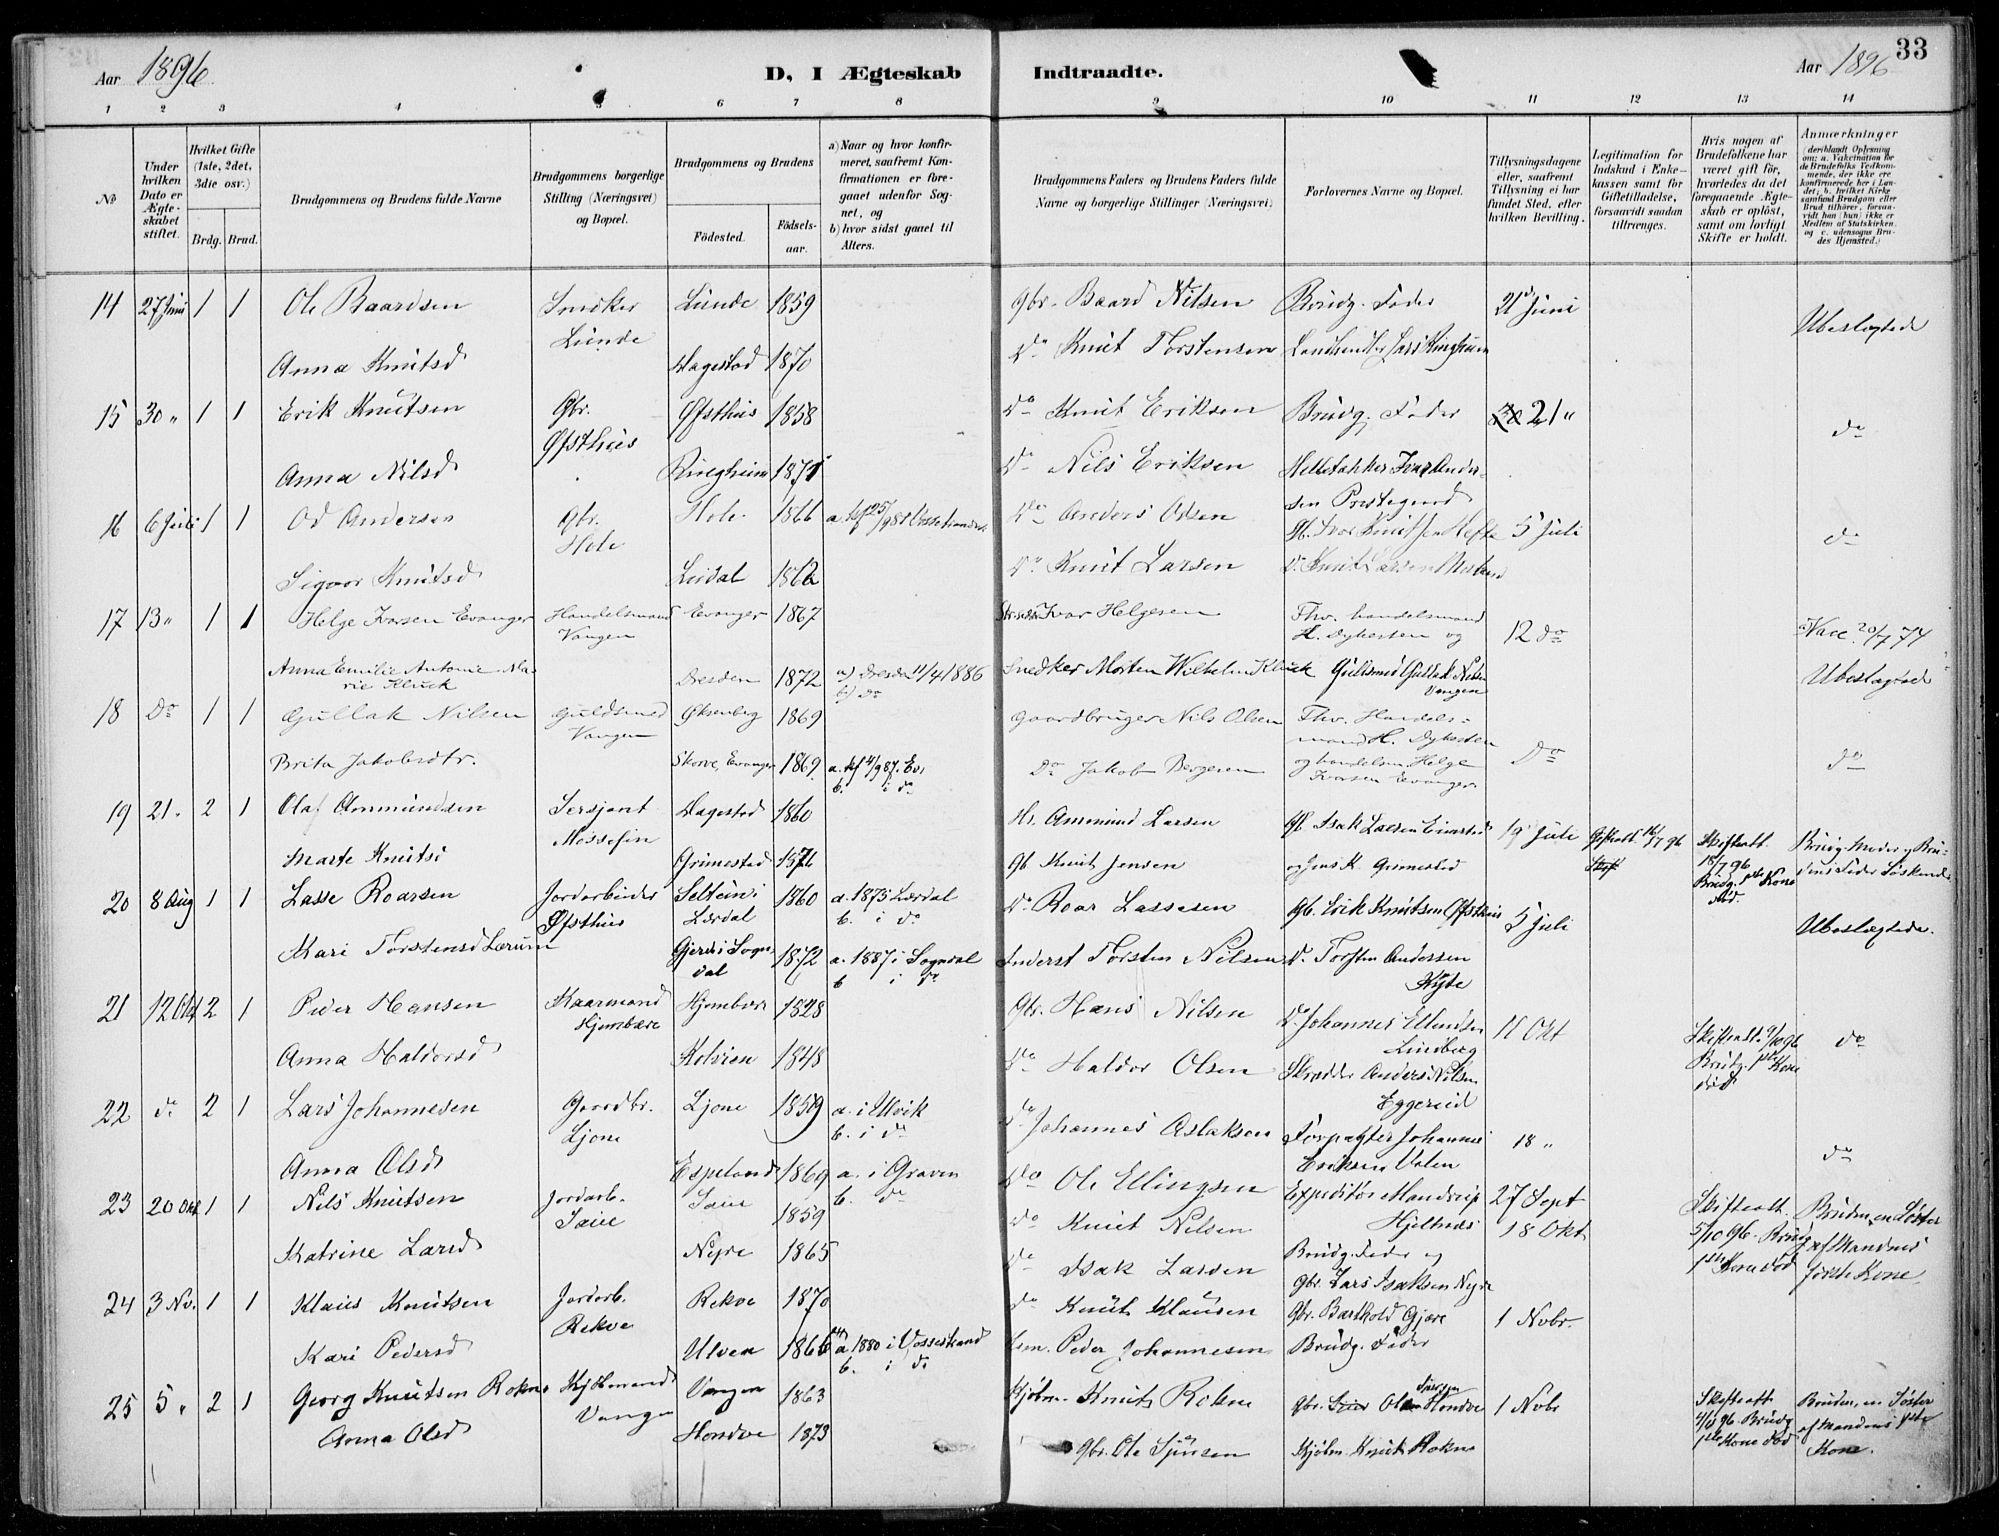 Aar 1896
D, I Ægteskab Indtraadte.
Aar 1896
33
1 2 3 4 5 6 7 8 9 10 11 12 13 14
No
Under hvilken Dato er Ægteskabet stiftet.
Hvilket Gifte (1ste, 2det, 3die osv.)
Brdg. Brud.
Brudgommens og Brudens fulde Navne
Brudgommens borgerlige Stilling (Næringsvei) og Bopæl.
Brudgommens og Brudens
Fødested.
Fødselsaar.
a) Naar og hvor konfirmeret, saafremt Konfirmationen er foregaaet udenfor Sognet, og
b) hvor sidst gaaet til Alters.
Brudgommens Faders og Brudens Faders fulde Navne og borgerlige Stillinger (Næringsvei)
Forlovernes Navne og Bopæl.
Tillysningsdagene eller, saafremt Tillysning ei har fundet Sted, efter hvilken Bevilling.
Legitimation for Indskud i Enkekassen samt for Giftetilladelse, forsaavidt saadan tiltrænges.
Hvis nogen af Brudefolkene har været gift før, hvorledes da det foregaaende Ægteskab er opløst, samt om lovligt Skifte er holdt.
Anmærkninger (deriblandt Oplysning om: a. Vakcination for de Brudefolks Vedkommende, der ikke ere konfirmerede her i Landet; b. hvilket Kirkesamfund Brudgom eller Brud tilhører, forsaavidt han (hun) ikke er Medlem af Statskirken, og c. udensogns Brudes Hjemsted.)
14 27 Juni 1 1 Ole Baardsen Snedker Lunde Lunde 1859 Gbr. Baard Nilsen Brudg. Fader 21 Juni Ubeslægtede
Anna Knutsd Hagestad 1870 Do Knut Torstensen Landhandler Lars Ringheim
15 30 " 1 1 Erik Knutsen Gbr. Øfsthus Øfsthus 1858 Do Knut Eriksen Brudg. Fader 21 " do
Anna Nilsd Ringheim 1871 Do Nils Eriksen Andersen Prestegaard
16 6 Juli 1 1 Od Andersen Gbr. Hole Hole 1866 Do Anders Odsen Knutsen Hefte 5 Juli do
Sigvor Knutsd Lirdal 1862 Do Knut Larsen Do Knut Larsen
17 13 " 1 1 Helge Ivarsen Evanger Handelsmand Vangen Evanger 1867 Ivar Helgesen Fhv. handelsmand H. Dyksten og 12 do Vacc. 20/7 74
Anna Emilie Antonie Marie Kluck Dresden 1872 a) Dresden 11/4 1886 b) do Snedker Morten Wilhelm Kluck Guldsmed Gullak Nilsen Vangen Ubeslægtede
18 Do 1 1 Gullak Nilsen Guldsmed Vangen Øksenberg 1869 Gaardbruger Nils Olsen Fhv. Handelsmand H. Dyksten Do do
Brita Jakobsdtr. Skorve, Evanger 1869 a. kf 4/9 87. Ev. b. i do Do Jakob Bergesen og handelsm Helge Ivarsen Evanger
19 21 " 2 1 Olaf Ammundsen Sersjant Mossefin Hagestad 1860 Ammund Larsen Gb. Isak Larsen 19 Juli 16/7 96 Skifteatt. 18/7 96 Brudg. 1ste Kone død. Brudg. Moder og Brudens Fader Søskende
Marte Knutsd Grimestad 1876 Gb Knut Jensen og Jens K. Grimestad
20 8 Aug 1 1 Lasse Roarsen Jordarbeider Øfsthus Seltun i Lærdal 1860 a. 1875 Lærdal b. i do Do Roar Lassesen Gb. Erik Knutsen Øfsthus 5 Juli Ubeslægtede.
Kari Torstensd Lærum Gjerde i Sogndal 1872 a. 1887 i Sogndal b i do Inderst Torsten Nilsen Do Torsten Andersen Kyte
21 12 Okt 2 1 Peder Hansen Kaarmand Hjembære Hjembære 1828 Gbr. Hans Nilsen Do Johannes Ellendsen Lindberg 11 Okt Skifteatt. 9/10 96 Brudg. 1ste Kone død do
Anna Haldorsd 1848 Do Haldor Olsen Skrædder Anders Nilsen Eggereid
22 do 2 1 Lars Johannesen Gaardbr. Ljone Ljone 1859 a. i Ulvik b. i do Do Johannes Aslaksen Forpagter Johannes Eriksen 18 " do
Anna Olsd Espeland 1869 a. i Graven b. do Do Ole Ellingsen Expeditør Mandrup Hjeltnæs 27 Sept Skifteatt. 5/10 96. Brudg 1ste Kone død Bruden en Søster af Mandens første Kone.
23 20 Okt 1 1 Nils Knutsen Jordarb. Saue Saue 1859 Do Knut Nilsen Brudg. Fader og 18 Okt
Katrine Larsd Nyre 1865 Do Isak Larsen Gbr. Lars Isaksen Nyre
24 3 Nov. 1 1 Klaus Knutsen Jordarb. Rekve Rekve 1870 Do Knut Klausen Gbr. Barthold Gjære 1 Novbr.
Kari Pedersd Ulven 1866 a 1880 i Vossestrand b. i do Peder Johannesen Brudg. Fader
25 5 " 2 1 Georg Knutsen Rokne Kjøbmand Vangen Vangen 1863 Kjøbm. Knut Rokne Gbr. Sjursen Hondve 1 Novbr Skifteatt 4/11 96 Brudg 1ste Kone død Bruden en Søster af Mandens 1ste Kone.
Anna Olsd Hondve 1873 Gbr. Ole Sjursen Kjøbm. Knut Rokne